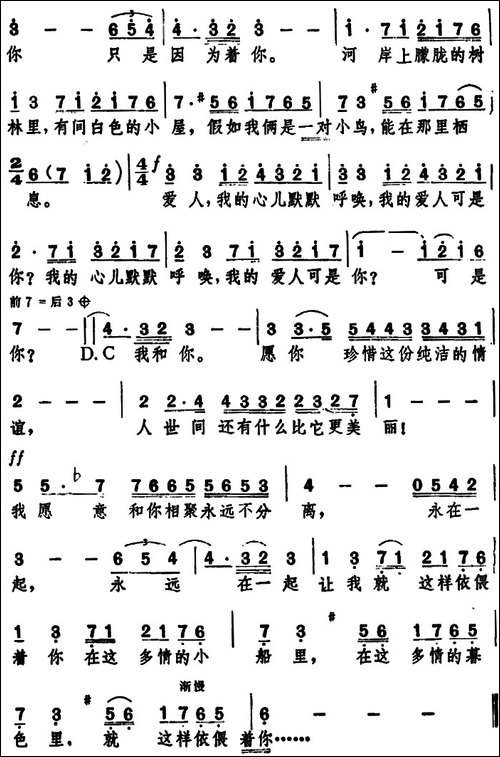 3 - - 6 5 4 | 4 · 3 2 3 - | 1 · 7 2 1 2 1 7 6 |
你 只是因为着你。 河岸上朦胧的树
1 3 7 1 2 1 7 6 | 7 · #5 6 1 7 6 5 | 7 3 #5 6 1 7 6 5 |
林里,有间白色的小屋,假如我俩是一对小鸟,能在那里栖
2/4 6 (7 1 2) | 4/4 f 3 3 2 1 2 3 2 1 | 2 3 1 2 4 3 2 1 |
息。 爱人,我的心儿默默呼唤,我的爱人可是
2 · 7 1 3 2 1 7 | 2 3 7 1 3 2 1 7 | 1 - 1 2 1 6 |
你?我的心儿默默呼唤,我的爱人可是你? 可是
前7=后3
7 - - || 4 · 3 2 3 - - | 3 3 · 5 5 4 4 3 3 4 3 1 |
你? D.C 我和你。 愿你 珍惜这份纯洁的情
2 - - - | 2 2 · 4 4 3 3 2 2 3 2 7 | 1 - - - |
谊, 人世间还有什么比它更美丽!
ff
5 5 · b7 7 6 6 5 5 6 5 3 | 4 - - 0 5 4 2 |
我愿意和你相聚永远不分离, 永在一
3 - - 6 5 4 | 4 · 3 2 3 | 1 3 7 1 2 1 7 6 |
起, 永远 在一起让我就这样依偎
1 3 7 1 2 1 7 6 | 7 3 #5 6 1 7 6 5 |
着你在这多情的小船里,在这多情的暮
渐慢
7 3 #5 6 1 7 6 5 | 6 - - - ||
色里,就这样依偎着你……